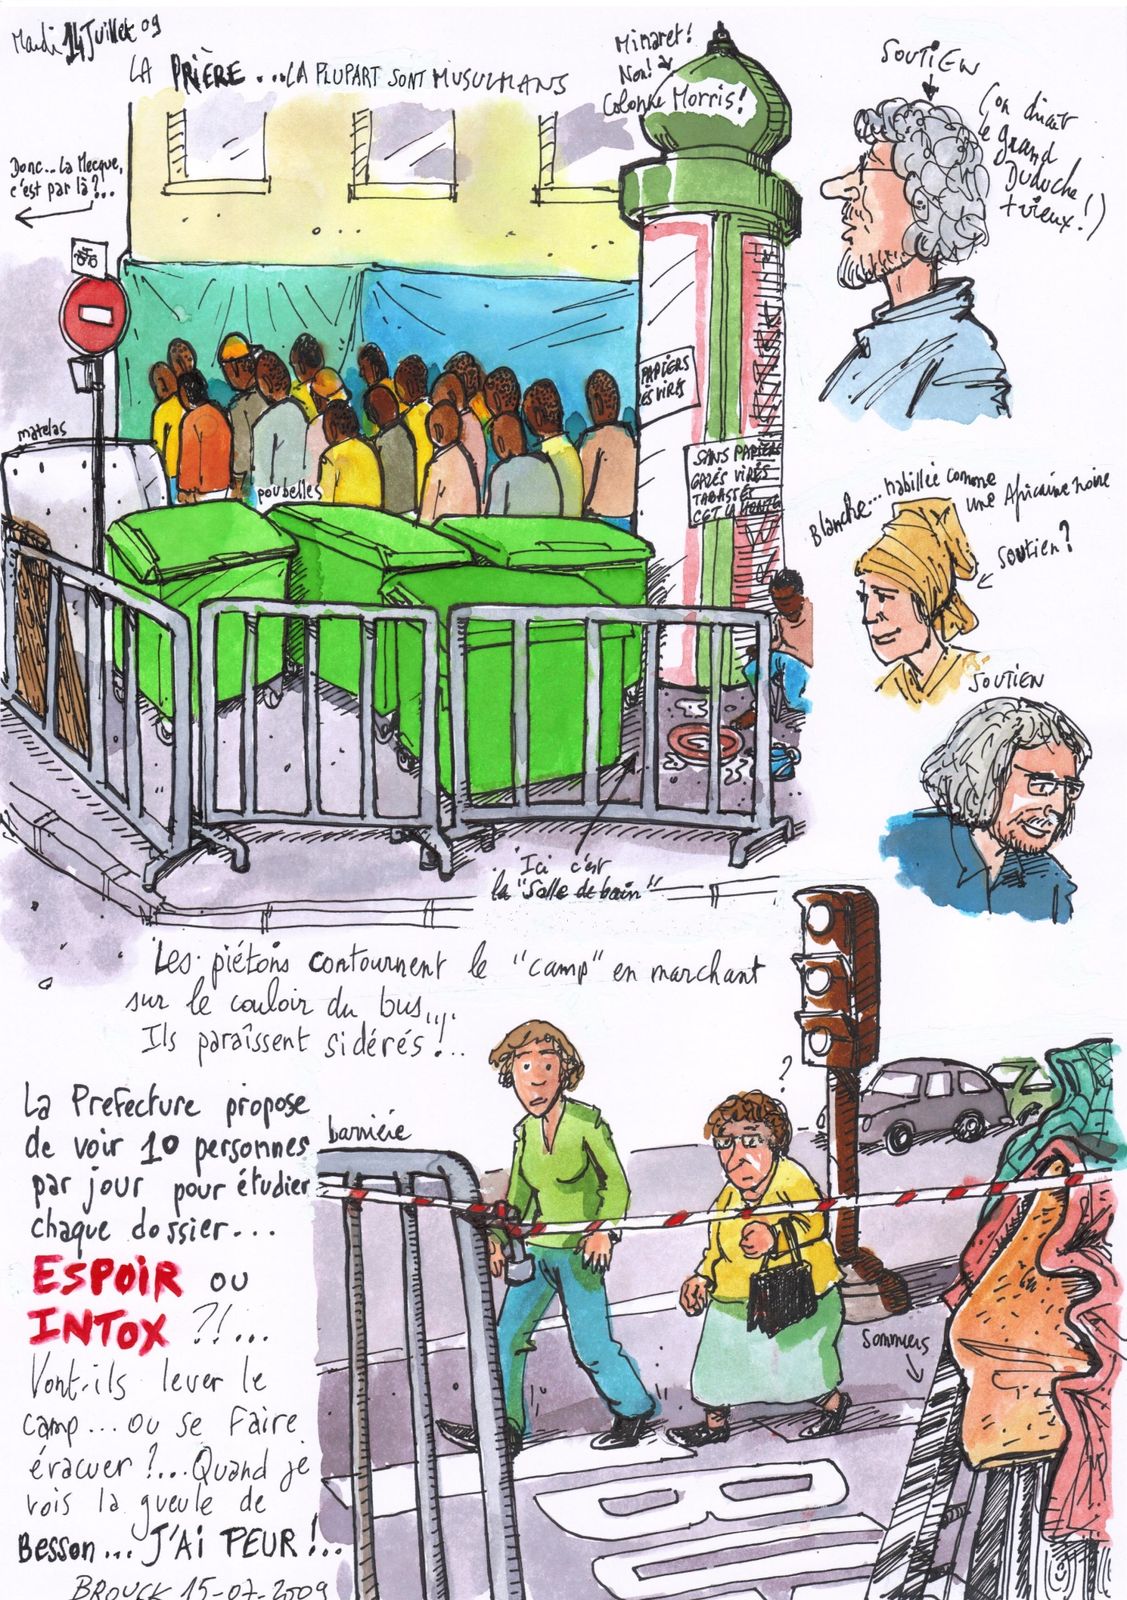 Mardi 14 Juillet 09
LA PRIÈRE...LA PLUPART SONT MUSULMANS
Minaret!
Non!
Colonne Morris!
SOUTIEN
(on dirait
le grand
Duduche
+ vieux!)
Donc...La Mecque,
c'est par là?...
matelas
poubelles
PAPIERS
VIRÉS
SANS PAPIERS
GAZÉS VIRÉS
TABASSÉS
CGT LA HONTE
Blanche... habillée comme
une Africaine noire
soutien?
SOUTIEN
Ici c'est
la "Salle de bain"
Les piétons contournent le "camp" en marchant
sur le couloir du bus...
Ils paraîssent sidérés!...
?
La Prefecture propose
de voir 10 personnes
par jour pour étudier
chaque dossier...
ESPOIR ou
INTOX ?!...
Vont-ils lever le
camp...ou se faire
évacuer?...Quand je
vois la gueule de
Besson...J'AI PEUR!...
BROUCK 15-07-2009
barrière
Sommiers